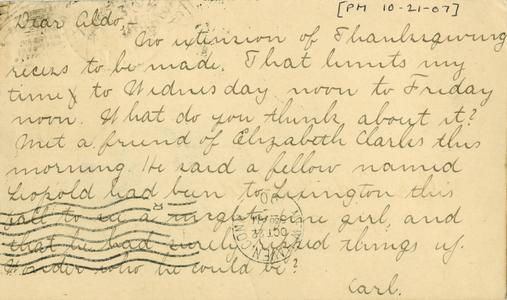 [PM 10-21-07]
Dear Aldo,-
No extension of Thanksgiving
recess to be made. That limits my
time to Wednesday noon to Friday
noon. What do you think about it?
Met a friend of Elizabeth Clarks this
morning. He said a fellow named
Leopold had been to Lexington this
fall to see a mighty fine girl, and
that he had surely used things up.
Wonder who he could be?
Carl.
HAVEN CONN
OCT 22